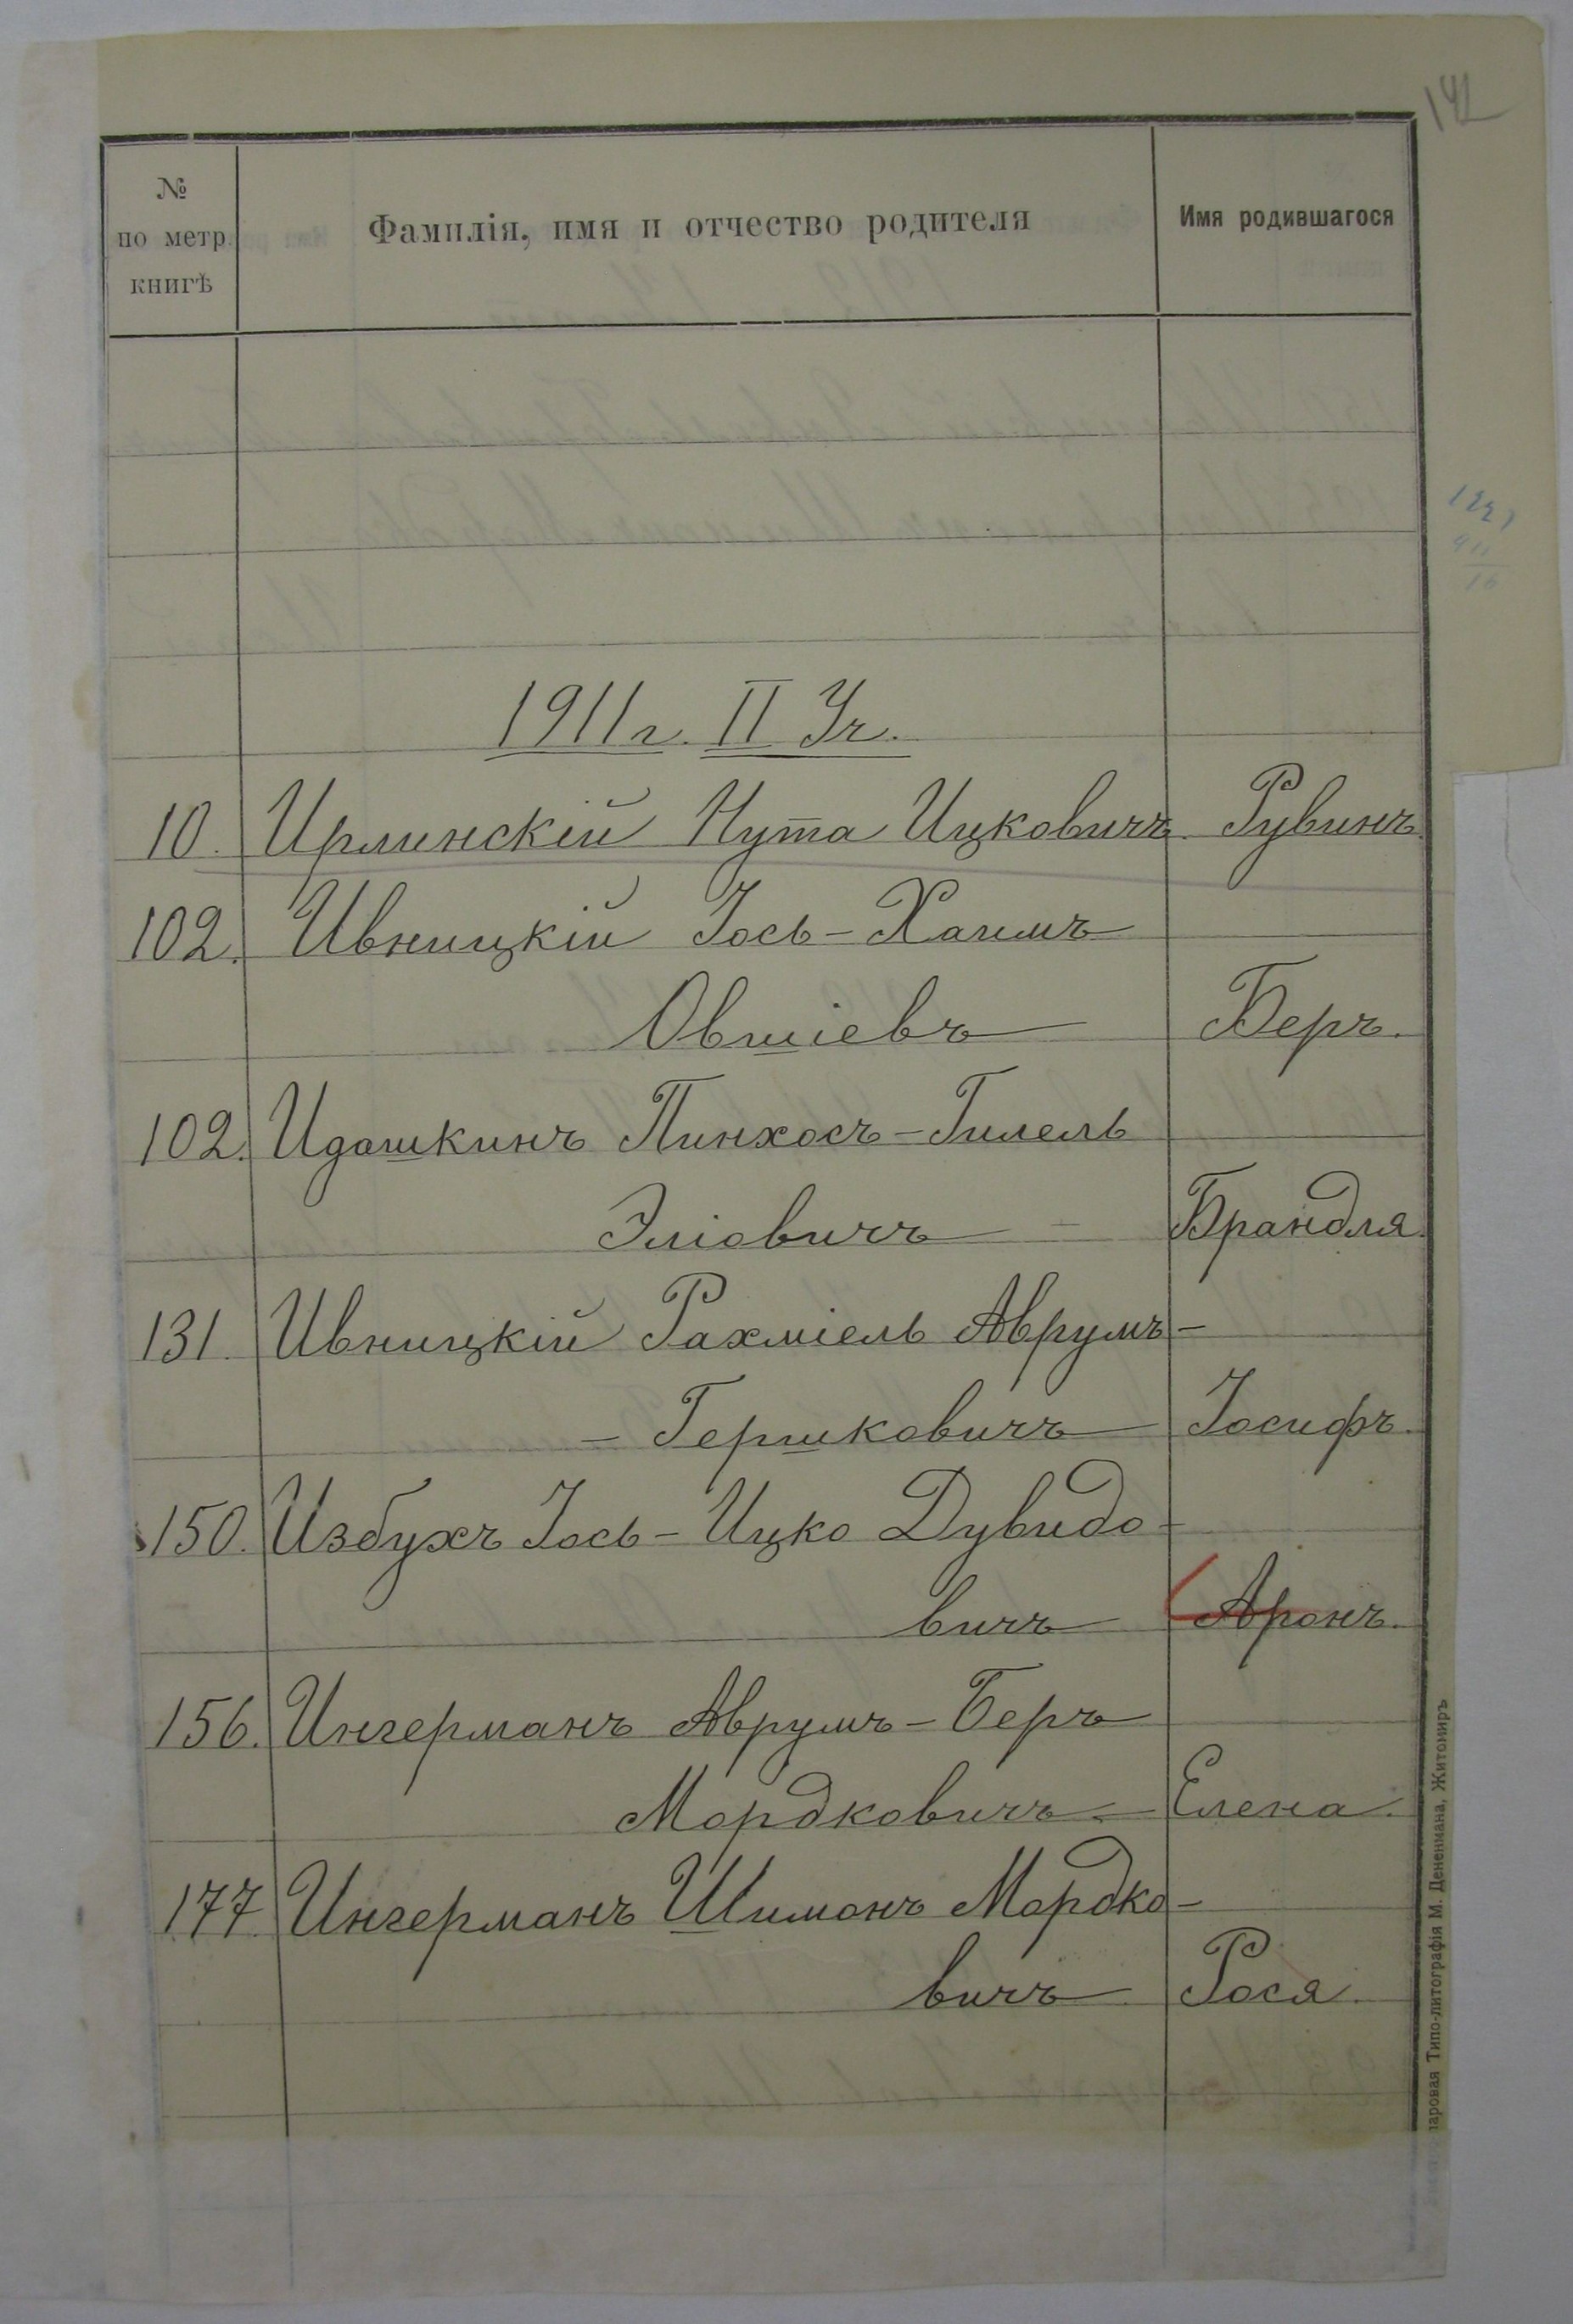 142
№
по метр.
книгѣ
Фамилія, имя и отчество родителя
Имя родившагося
1911 г. II Уч.
10. Ирлинскій Нута Ицковичъ Рувинъ
102. Ивницкій Іось-Хаимъ
Овшіевъ Беръ.
102. Идашкинъ Пинхосъ-Гилель
Эліовичъ — Брандля.
131. Ивницкій Рахміель Аврумъ-
- Гершковичъ Іосифъ.
150. Избухъ Іось-Ицко Дувидо-
вичъ Аронъ.
156. Ингерманъ Аврумъ-Беръ
Мордковичъ - Елена.
177 Ингерманъ Шимонъ Мордко-
вичъ Рося.
паровая Типо-литографія М. Дененмана, Житомиръ